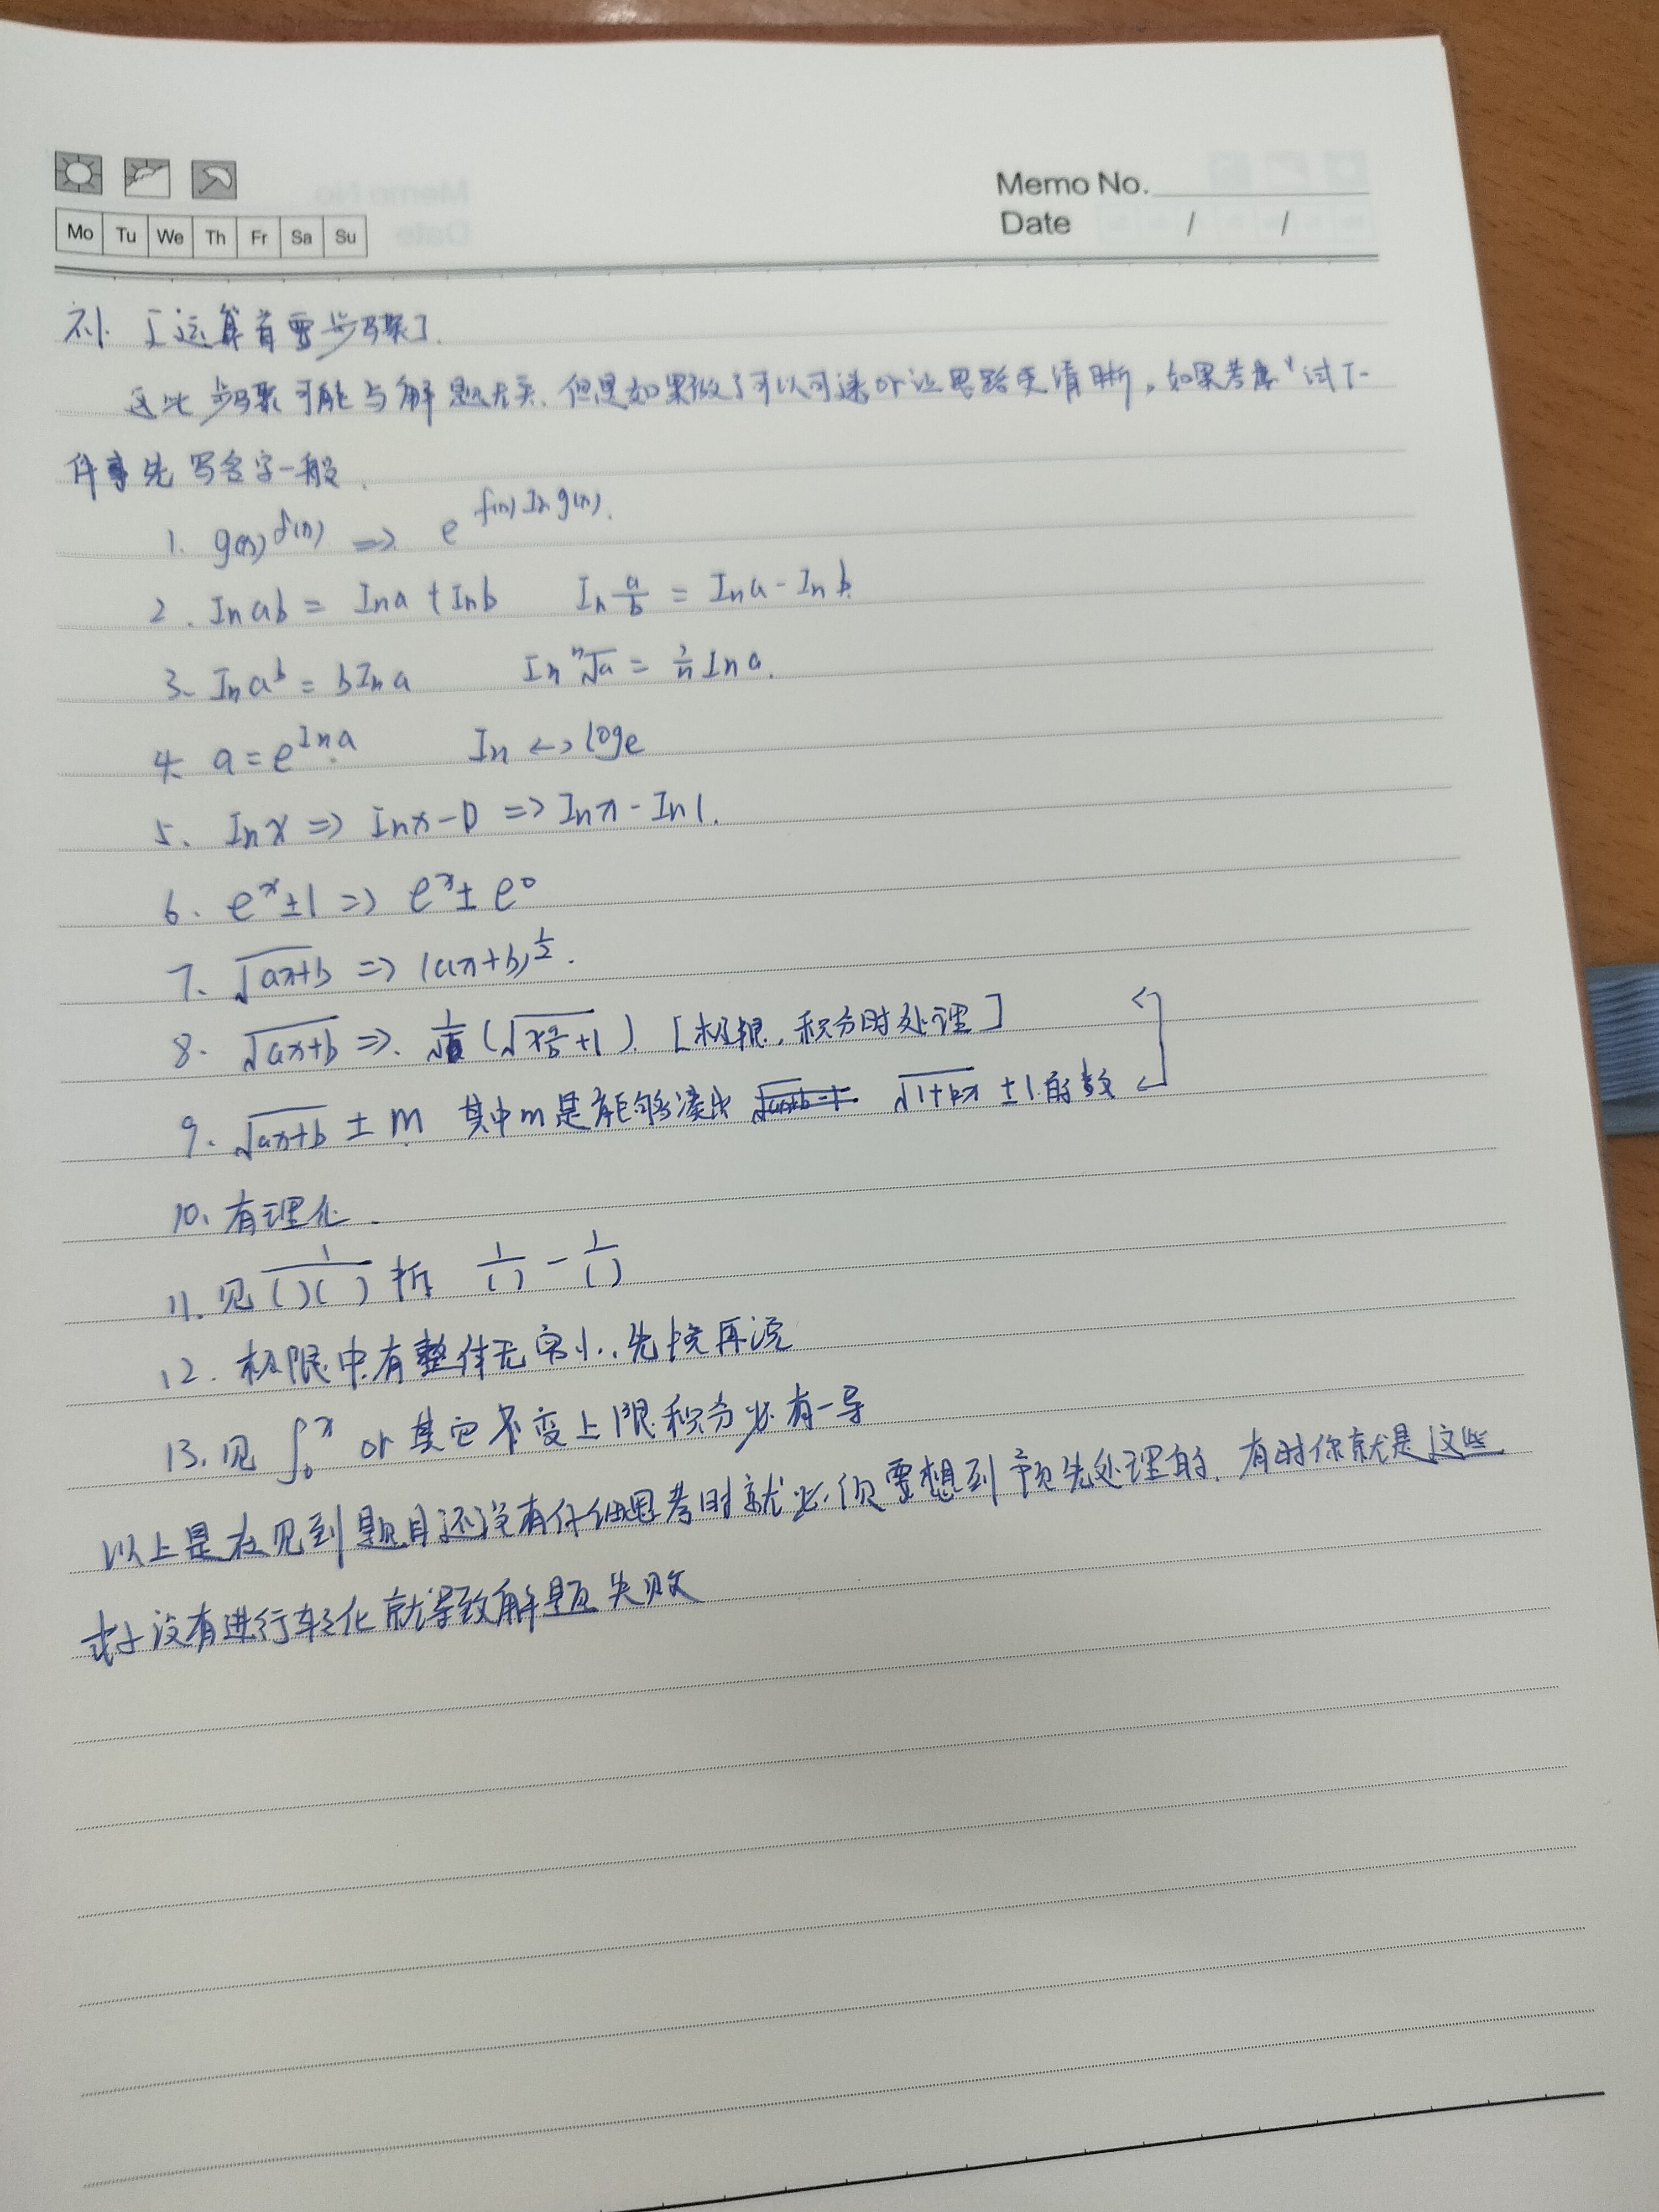 Memo No.
Mo Tu We Th Fr Sa Su
Date / /
补. [运算首要步骤].
这些步骤可能与解题无关, 但是如果做了可以可 or 让思路更清晰, 如果考 试下
件事先写名字一般.
1. g(x)^f(x) => e^f(x) ln g(x).
2. ln ab = ln a + ln b ln a/b = ln a - ln b.
3. ln a^b = b ln a ln ⁿ√a = 1/n ln a.
4. a = e^ln a ln <-> loge
5. ln x => ln x - 0 => ln x - ln 1.
6. e^x ± 1 => e^x ± e^0
7. √(ax+b) => (ax+b)^1/2.
8. √(ax+b) => [极限, 积分时处理]
9. √(ax+b) ± m 其中m是能够凑出 √(1+bx) ± 1 的数
10. 有理化.
11. 见 1/( )( ) 拆 1/( ) - 1/( )
12. 极限中有整体无穷小, 先换再说
13. 见 ∫₀^x or 其它 变上限积分必有一导
以上是在见到题目还没有仔细思考时就必须要想到预先处理的, 有时你就是这些
式子没有进行转化就导致解题失败